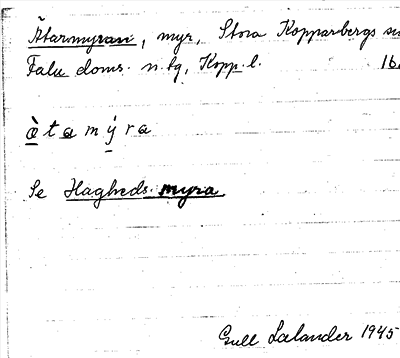 Ätarmyran, myr, Stora Kopparbergs sn
Falu doms. n. tg, Kopp. l. 16.
æ̀ t a m ý r a
Se Hagheds myra
Gull Lalander 1945